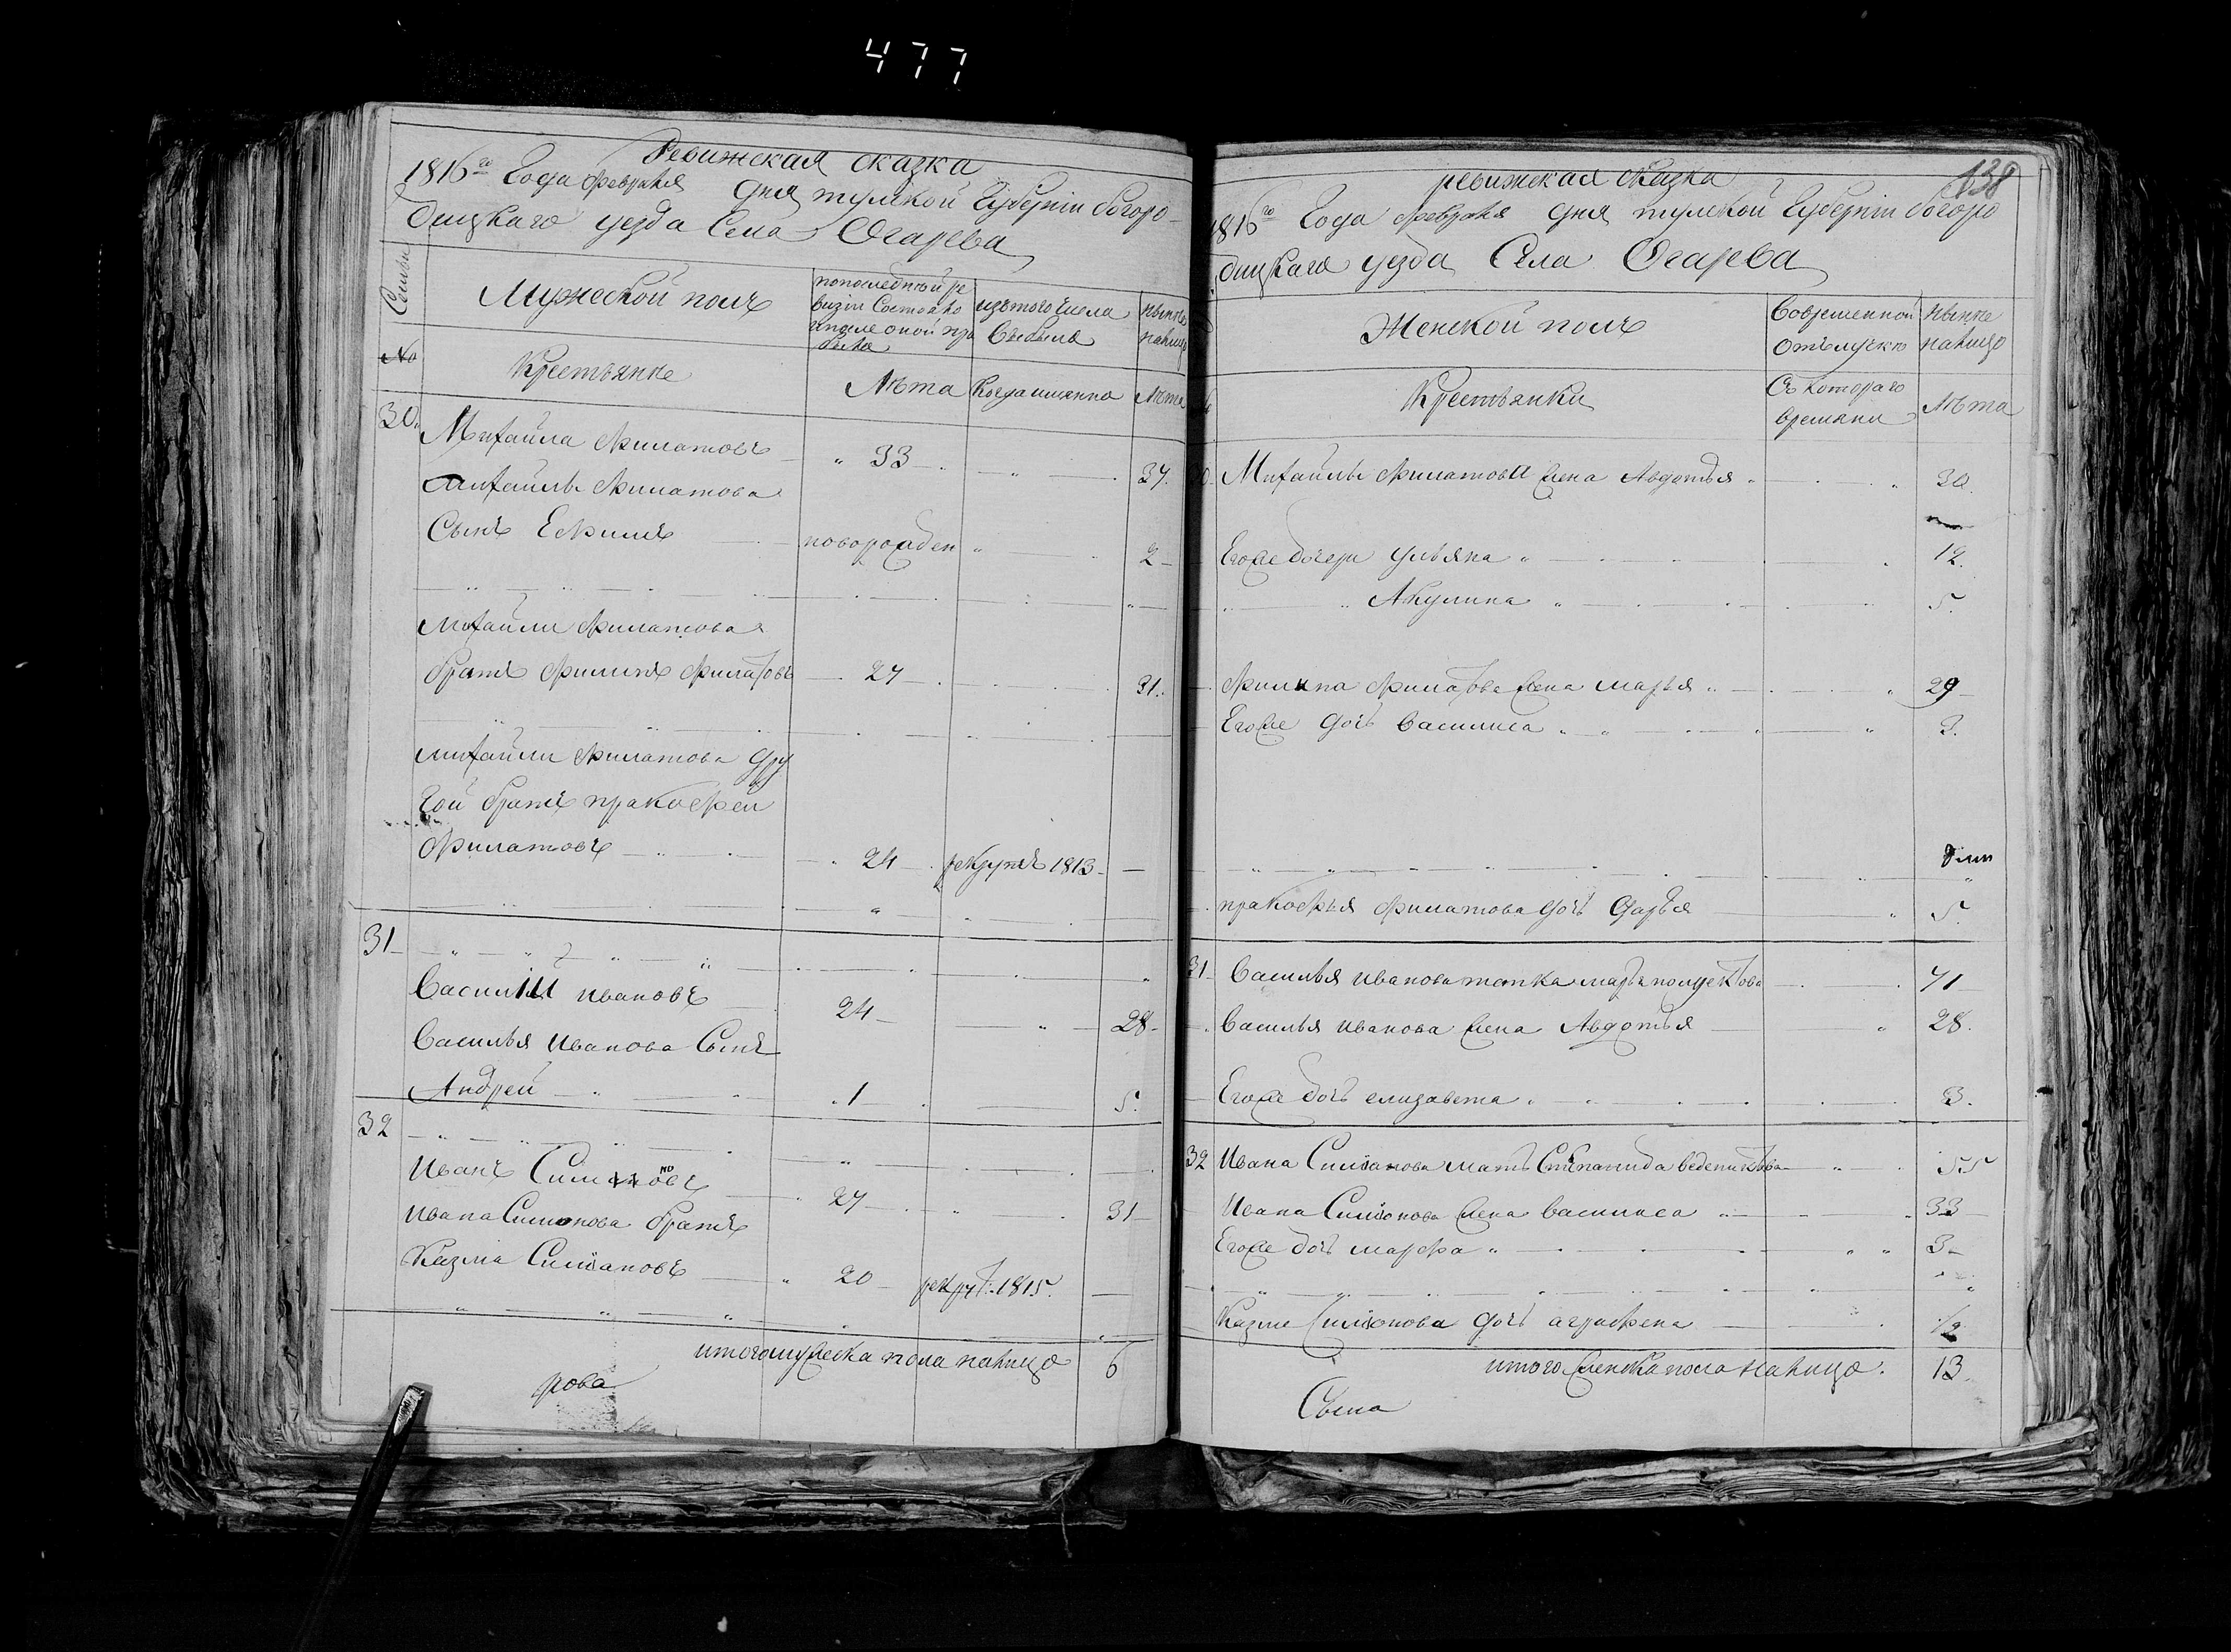 477
Ревижская сказка
1816го Года февраля дня тулской Губернiи богоро-
дицкаго уезда Села Огарева
Семьи
Мужеской полъ
попоследней ре
визiи Состояло
ипосле оной при
было
изътого числа
Выбыло
ныне
налицо
№
Крестьяне
Лѣта
Когда имянно
Лѣта
30.
Михайла Филатовъ 33 37.
Михайлы Филатова
Сынъ Ефимъ новорожден 2
Михайлы Филатова
братъ Филипъ Филатовъ 27 31.
Михайлы Филатова дру
гой братъ пракофей
Филатовъ 24 рекрутъ 1813
31
Василiй Ивановъ 24 28
Василья Иванова Сынъ
Андрей 1 5.
32
Иванъ Симоновъ 27 31
Ивана Симонова братъ
Казма Симоновъ 20 рекрут: 1815.
итого мужеска пола налицо 6
рова
138
ревижская сказка
1816го Года февраля дня тулской Губернiи богоро
дицкаго уезда Села Огарева
Женской полъ
Вовременной
отълучке
ныне
налицо
Крестьянки
Съ котораго
времяни
Лѣта
30. Михайлы Филатова жена Авдотья 30.
Егоже дочери Ульяна 12.
Акулина 5.
Филипа Филатова жена марья 29
Егоже дочь Василиса 3.
пракофья Филатова дочь Дарья 5.
31 Василья Иванова тетка марья полуектова 71
Василья Иванова жена Авдотья 28.
Егоже дочь елизавета 3.
32 Ивана Симонова мать Степанида веденихтова 55
Ивана Симонова жена Василиса 33
Егоже дочь марфа 3
Казме Симонова дочь аграфена 1/2
итого женска пола налицо. 13.
Сына